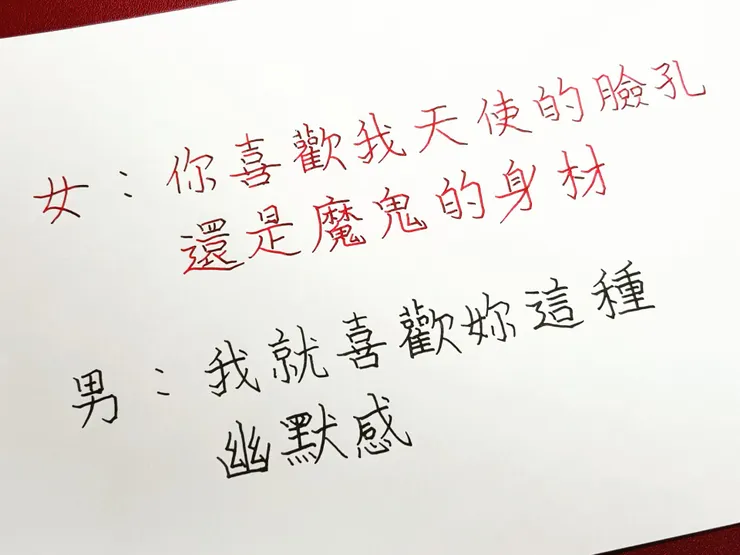 女：你喜歡我天使的臉孔
還是魔鬼的身材
男：我就喜歡妳這種
幽默感